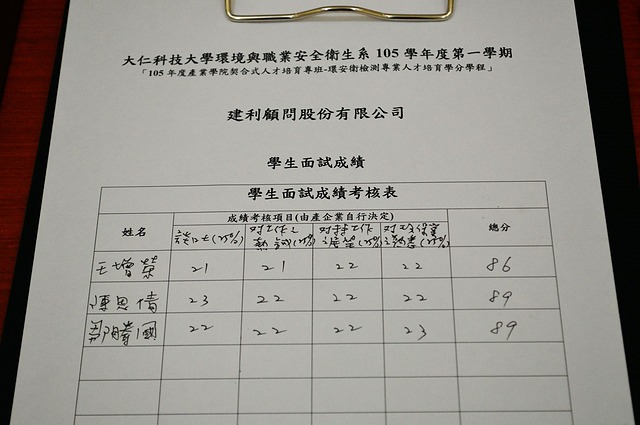 大仁科技大學環境與職業安全衛生系 105 學年度第一學期
「105 年度產業學院契合式人才培育專班-環安衛檢測專業人才培育學分學程」
建利顧問股份有限公司
學生面試成績
學生面試成績考核表
姓名 成績考核項目(由產企業自行決定) 總分
談吐(25%) 对工作之熱誠(25%) 对工作(25%) 对(25%)
王增榮 21 21 22 22 86
陳思倩 23 22 22 22 89
鄭勝國 22 22 22 23 89